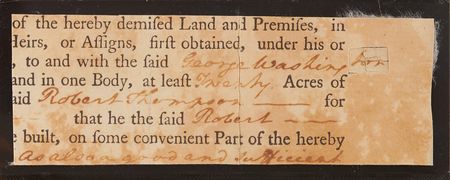 of the hereby demiſed Land and Premiſes, in
Heirs, or Aſſigns, firſt obtained, under his or
, to and with the said George Washington
and in one Body, at leaſt Twenty Acres of
aid Robert Thompson — for
that he the said Robert —
e built, on some convenient Part of the hereby
as also a good and Sufficient